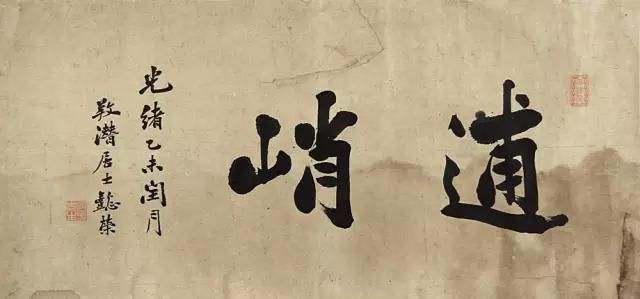 逋峭
光緒乙未閏月
𢼝潛居士懿榮